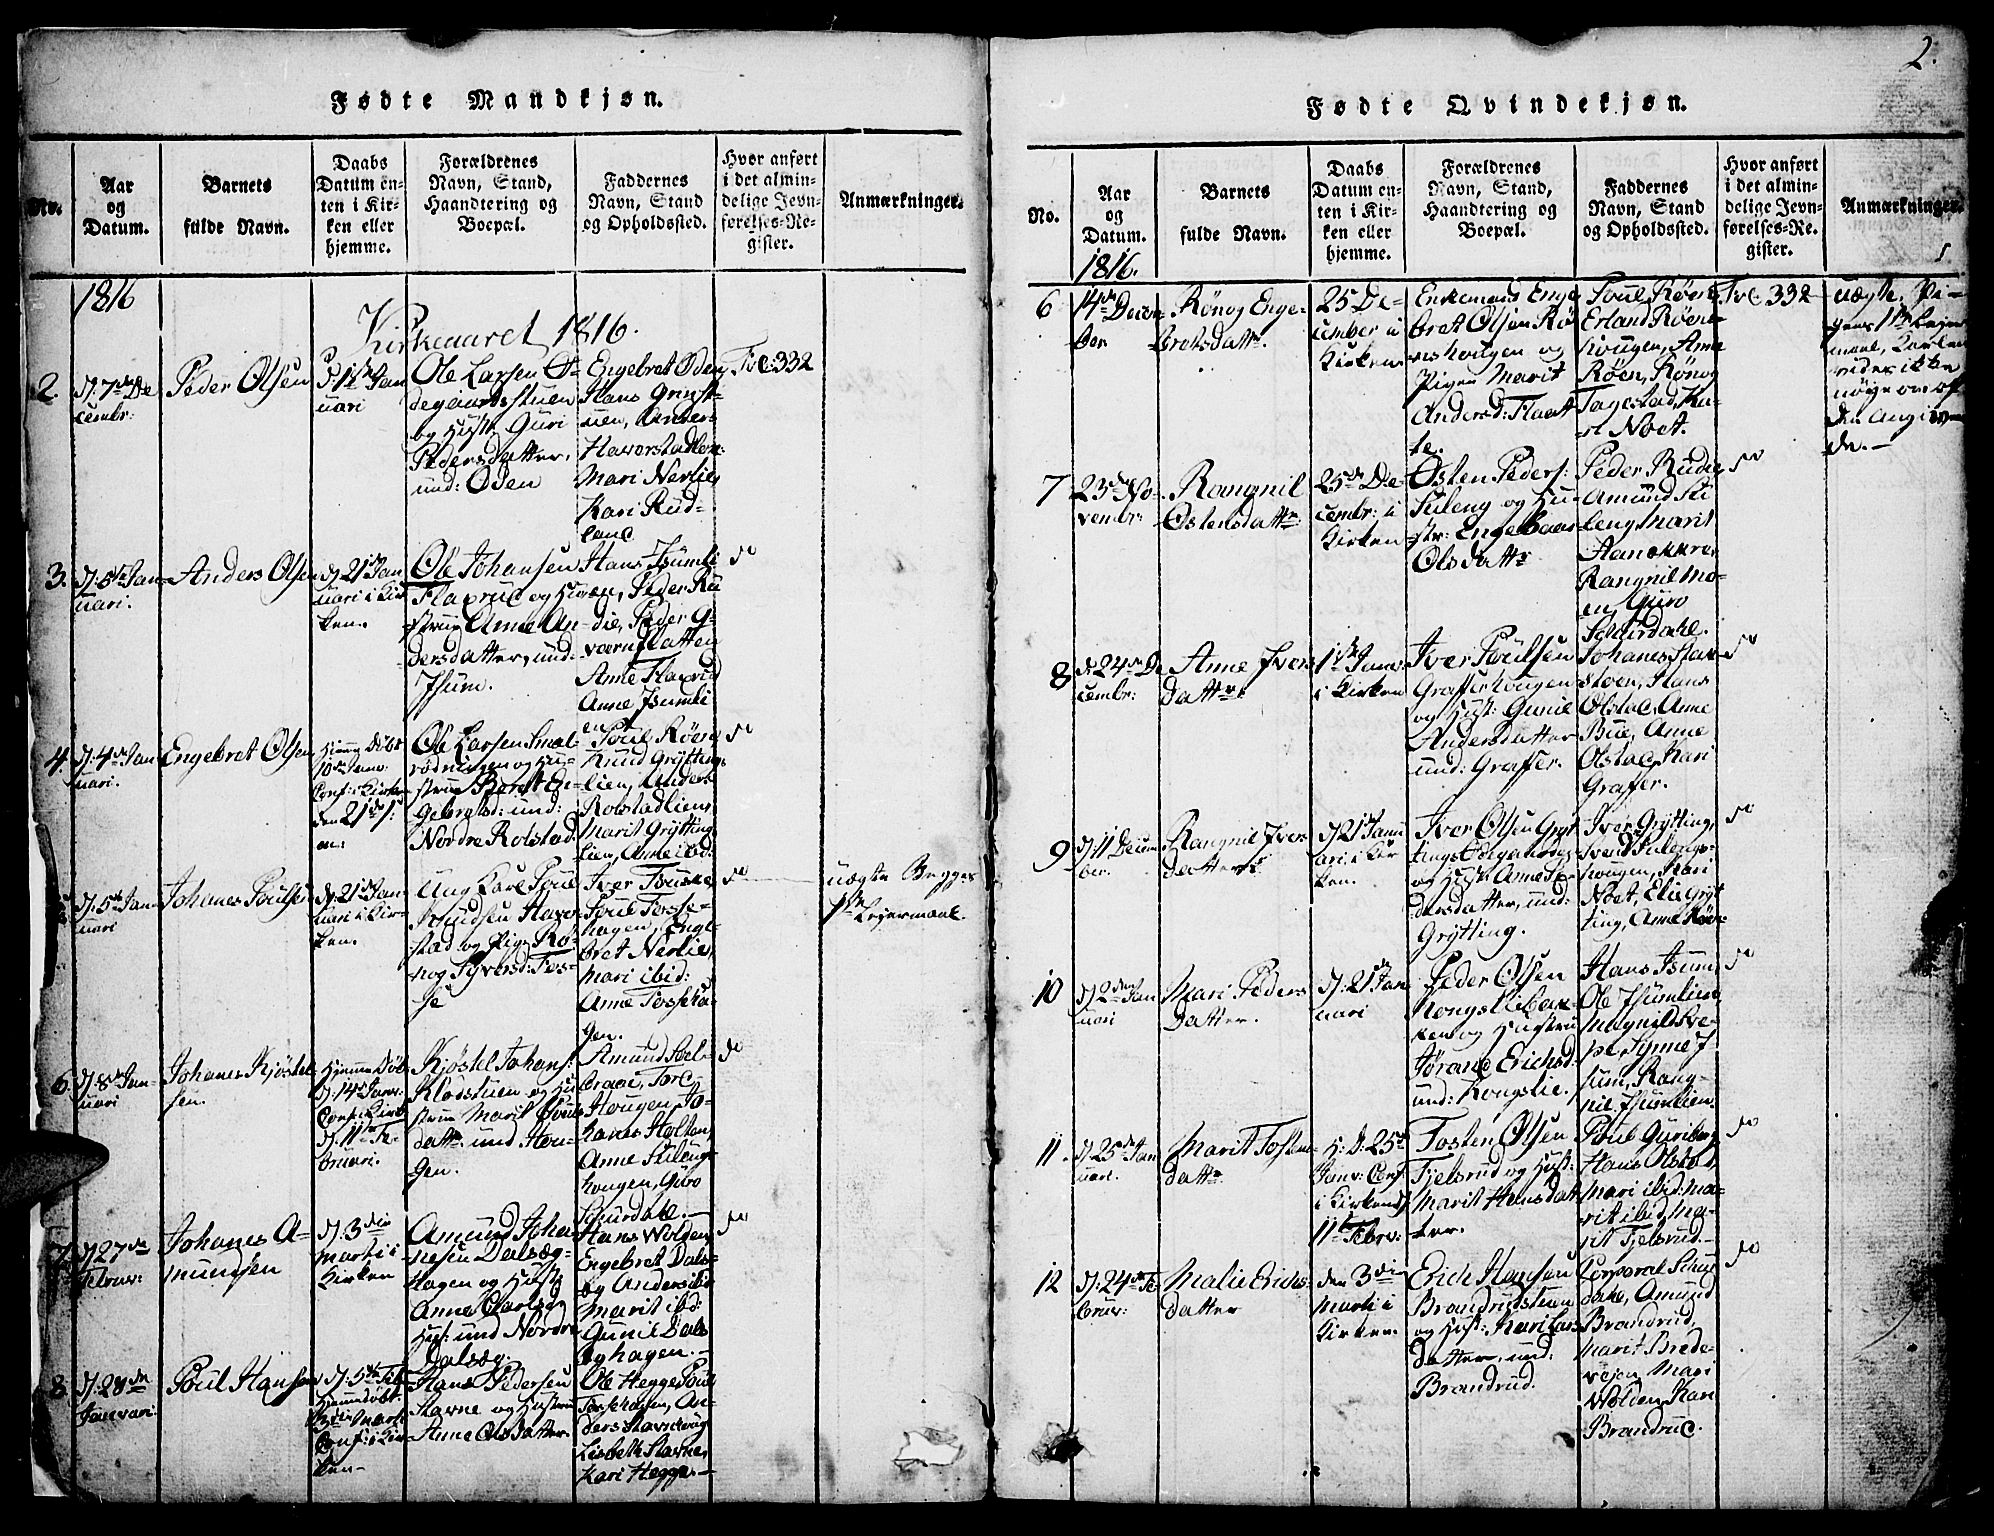 2.
Fødte Mandkjøn.
No.
Aar
og
Datum.
Barnets
fulde Navn.
Daabs
Datum en-
ten i Kir-
ken eller
hjemme.
Forældrenes
Navn, Stand,
Haandtering og
Boepæl.
Faddernes
Navn, Stand
og Opholdssted.
Hvor anført
i det almin-
delige Jevn-
førelses-Re-
gister.
Anmærkninger.
1816
Kirkeaaret 1816.
2.
d: 7de De
cembr:
Peder Olsen
Januari
Ole Larsen Ø-
degaardsstuen
og Hustr Guri
Pedersdatter,
und: Øden
Engebret Øden
Hans Grinst-
uen, Anders
Mari Nerlie,
Kari Rud-
land
Fol: 332
3.
d: 5te Jan-
uari.
Anders Olsen
d: 21de Jan
uari i Kir
ken.
Ole Johansen
Flaxrud og Hu-
strue Anne An-
dersdatter, und:
Isum.
Hans Isumli
en, Peder Ru
die, Peder
Anne Flaxrud
Anne Isumli
en
do
4.
d: 4de Jan
uari.
Engebret Olsen
Hjemme Døbt
10de Janv:
Conf: i Kirken
den 21de
Ole Larsen
og Hu-
strue Berett En-
gebretsd: und:
Nordre Rolstad
Poul Røen
Knud Grytting-
lien, Anders
Rolstadlien,
Marit Grytting
lien, Anne ibid:
do
d: 5te Jan-
uari
Johanes Poulsen
d: 21de Jan-
uari i Kir-
ken.
Ung Karl Poul
Knudsen Haver
stad og Pige Rø-
nog Syversd: Fos-
se
Iver
Poul Fosse-
hagen, Enge-
bret Nerlie,
Mari ibid:
Anne Fosseha-
gen.
do
uægte Begges
1ste Leiermaal.
6.
d: 8de Jan-
uari
Johanes Kjøstel
sen.
Hjemme Døbt
d: 14de Janv:
Conf: i Kirk
d: 11te Fe-
bruari.
Kjøstel Johans:
Klødstuen og Hu
strue Marit Pouls
datter und Hou-
gen.
Amund Sel-
braae, Tore
Hougen, Jo-
hanes Holten,
Anne Suleng-
hougen, Guro
Schurdahl.
do
7.
d: 27de
Febru:
Johanes A-
mundsen
d: 3die
Marti i
Kirken
Amund Joha
nesen Dalsæg-
Hagen og Hustr
Anne
und Nordre
Dalsæg.
Hans Wolden,
Engebret Dals-
og Anders ibid
Marit ibid:
Gunil Dals
eghagen.
do
8.
d: 28de
Januari.
Poul Hansen
d: 5te Feb
Hjemmedøbt
3die Marti
Conf: i Kir-
ken
Hans Pedersen
Stavne og Hustrue
Anne Olsdatter.
Ole Hegge, Poul
Fossehagen, An-
ders Stavnhoug
Lisbeth Stavne,
Kari Hegge.
Fødte Qvindekjøn.
No.
Aar
og
Datum.
Barnets
fulde Navn.
Daabs
Datum en-
ten i Kir-
ken eller
hjemme.
Forældrenes
Navn, Stand,
Haandtering og
Boepæl.
Faddernes
Navn, Stand
og Opholdssted.
Hvor anført
i det almin-
delige Jevn-
førelses-Re-
gister.
Anmærkninger.
1816.
6
14de Decem-
ber
Rønog Enge-
bretsdattr.
25 De-
cember i
Kirken
Enkemand Enge
bret Olsen Rø
enshougen og
Pigen Marit
Andersd: Flaat
te.
Poul Røen
Erland Røens-
hougen, Anne
Røen, Rønog
Tagestad, Ka-
ri Noet.
Fol: 332
uægte, Pi-
gens 1ste Leier
maal,
ikke
nøye om
den angivne
7
23de No-
vembr:
Rangnil
Østensdattr:
25de De-
cembr: i
Kirken
Østen Peders:
Suleng og Hu-
str: Engebaar
Olsdattr
Peder Rudie
Amund Su
leng, Marit
Rangnil Mo-
en, Guro
Schurdahl.
do
8
d: 24de De
cembr:
Anne Ivers
dattr.
1ste Janv:
i Kirken
Iver Poulsen
Grafferhougen
og Hust: Gunil
Andersdatter
und: Graffer.
Johanes Stav
Hans
Olstad, Anne
Bue, Anne
Olstad, Kari
Grafer.
do
9
d: 11 Decem
ber.
Rangnil Ivers
datter
d: 21de Janu
ari, i Kir
ken.
Iver Olsen Gryt
tings Ødegaarden
og Hustr Anne Pe-
dersdatter, und:
Grytting.
Iver Grytting,
Iver Sulengs-
hougen, Kari
Noet, Elie Gryt
ting, Anne Røen
do
10
d: 2den Jan
uari
Mari Peders
datter.
d: 21de Jan
uari
Peder Olsen
Kongslibak-
ken og Hustrue
Jørand Erichsd:
und: Kongslie.
Hans Isum,
Ole Isumlien,
Magnild
Synne I-
sum, Rang-
nil Isumlien.
do
11.
d: 25de Jan
uari.
Marit Tosten
dattr
H: D: 25de
Janv: Conf:
i Kirken d:
11te Febr:
Tosten Olsen
Fjelsrud og Hust:
Marit Hansdat
ter.
Poul Guriberg
Hans Olstad,
Mari ibid: Ma-
rit ibid, Ma-
rit Fjelsrud.
do
12
d: 24de Fe
bruar:
Malie Erichs-
datter
den 3die
Marti i
Kirken.
Erich Hansen
Brandrudstuen
og Hust: Kari Lars
datter, und:
Brandrud.
Corporal Schur
dahl, Amund
Brandrud,
Marit Brede-
vejen, Mari
Wolden, Kari
Brandrud.
do